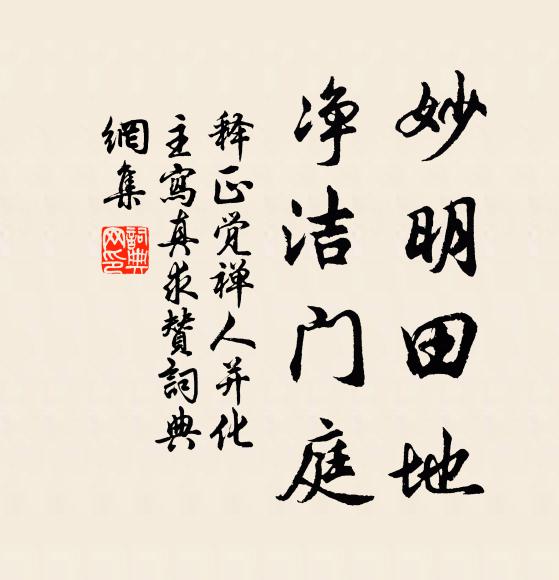 妙明田地
净洁门庭
释正觉禅人并化
主写真求赞詞典
網集
詞典網印